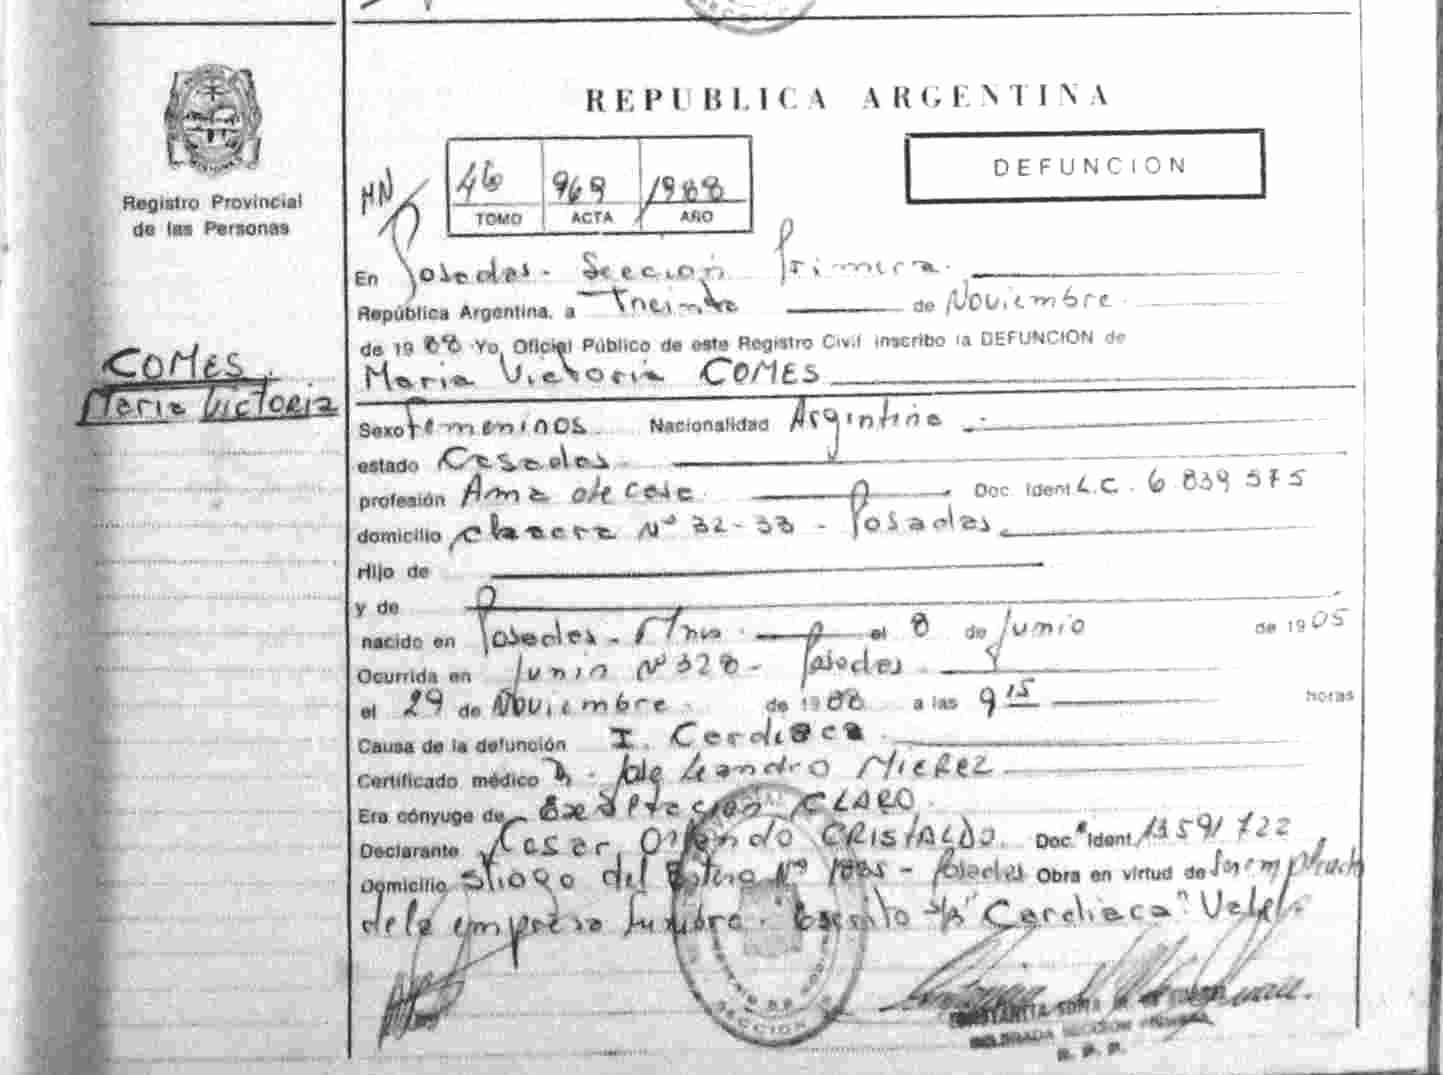 REPUBLICA ARGENTINA
DEFUNCION
Registro Provincial
de las Personas
HN
46 969 1988
TOMO ACTA AÑO
En Posadas - Sección Primera
República Argentina, a Treinta de Noviembre
de 1988 Yo, Oficial Público de este Registro Civil inscribo la DEFUNCION de
COMES
Maria Victoria
Maria Victoria COMES
Sexo Femeninos Nacionalidad Argentina
estado Casadas
profesión Ama de casa Doc. Ident. L.C. 6.839575
domicilio chacra Nº 32-33 - Posadas
Hijo de
y de
nacido en Posadas - Mnes. el 8 de Junio de 1905
Ocurrida en Junin Nº 328 - Posadas
el 29 de Noviembre de 1988 a las 9 15 horas
Causa de la defunción I. Cardiaca
Certificado médico D. Jose Leandro MIEREZ
Era cónyuge de CLARO
Declarante Cesar Orlando CRISTALDO Doc. Ident. 13591722
Domicilio Stiago del Estero Nº - Posadas Obra en virtud de Ser empleado
de la empresa funebre. Escrito "Cardiaca". Vale
SECCION